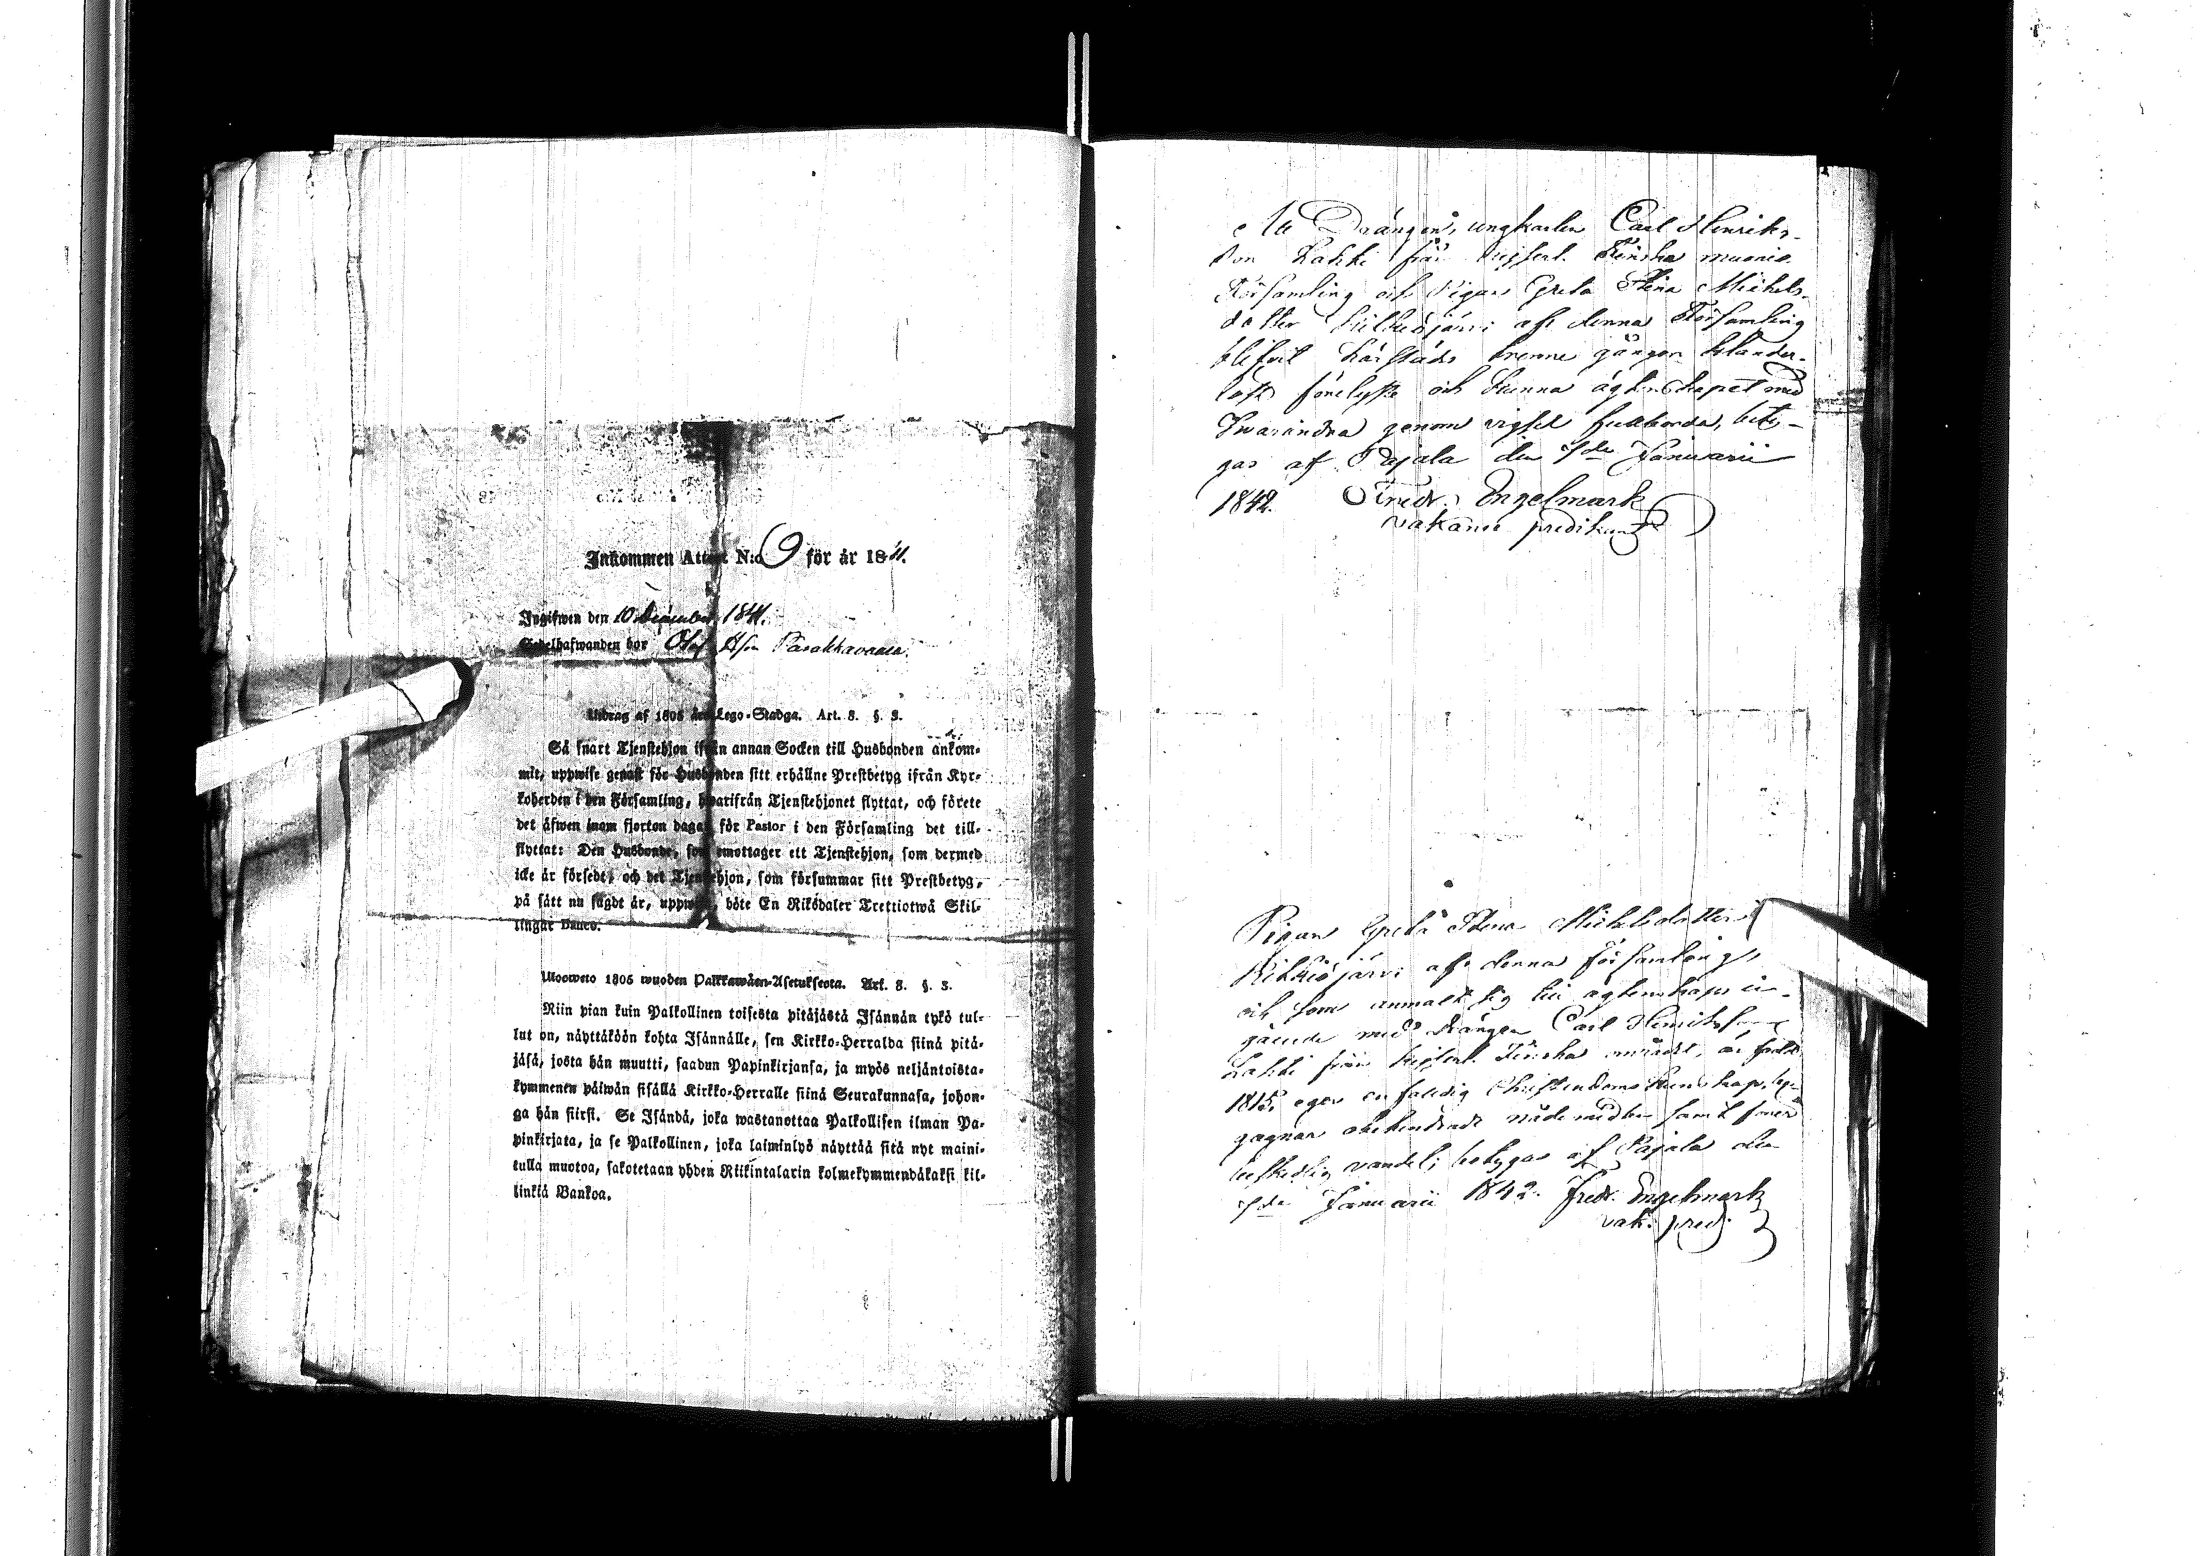 Inkommen Attest N:o 9 för år 1841.
Ingifwen den 10 December 1841.
Sedelhafwanden bor Olof Ason Parakkavaara.
Utdrag af 1805 års Lego-Stadga. Art. 8. §. 3.
Så snart Tjenstehjon ifrån annan Socken till Husbonden ankom-
mit, uppwise genast för Husbonden sitt erhållne Prestbetyg ifrån Kyr-
koherden i den Församling, hwarifrån Tjenstehjonet flyttat, och förete
det äfwen inom fjorton dagar för Pastor i den Församling det till-
flyttat: Den Husbonde, som emottager ett Tjenstehjon, som dermed
icke är försedt, och det Tjenstehjon, som försummar sitt Prestbetyg,
på sätt nu sagdt är, uppwisa, böte En Riksdaler Trettiotwå Skil-
lingar Banco.
Ulosweto 1805 wuoden Palkkawäen-Asetuksesta. Art. 8. §. 3.
Niin pian kuin Palkollinen toisesta pitäjästä Isännän tykö tul-
lut on, näyttäköön kohta Isännälle, sen Kirkko-Herralda siinä pitä-
jäsä, josta hän muutti, saadun Papinkirjansa, ja myös neljäntoista-
kymmenen päiwän sisällä Kirkko-Herralle siinä Seurakunnasa, johon-
ga hän siirsi. Se Isändä, joka wastanottaa Palkollisen ilman Pa-
pinkirjata, ja se Palkollinen, joka laiminlyö näyttää sitä nyt maini-
tulla muotoa, sakotetaan yhden Riikintalarin kolmekymmendäkaksi kil-
linkiä Bankoa.
Att Drängen, ungkarlen Carl Henriks-
son Lakki från Kejserl. Finska muonio
Församling och Pigan Greta Stina Michels-
dotter Kitkiöjärvi af denna Församling
blifvit härstädes trenne gånger klander-
löst förelyste och kunna ägtenskapet med
hvarandra genom vigsel fullborda, bety-
gas af Pajala den 7de Januarii
1842. Fredr. Engelmark
vakance predikant
Pigan Greta Stina Michelsdotter
Kitkiöjärvi af denna församling,
och som anmält sig till ägtenskaps in-
gående med drängen Carl Henriksson
Lakki från Kejserl. Finska området, är född
1815, eger en försvarlig Christendoms kunskap, be-
gagnar obehindradt nådemedlen samt förer
beskedlig vandel; betygas af Pajala den
7de Januarii 1842. Fredr. Engelmark
vak. pred.